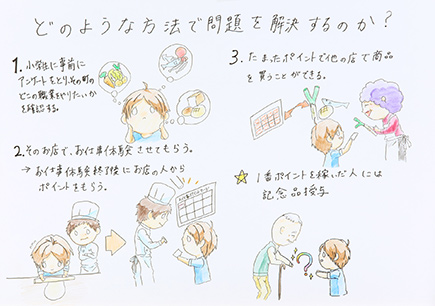 どのような方法で問題を解決するのか?
1. 小学生に事前に
アンケートをとり、その町の
どこの職業をやりたいか
を確認する。
2. そのお店で、お仕事体験させてもらう。
→ お仕事体験終了後にお店の人から
ポイントをもらう。
3. たまったポイントで他の店で商品
を買うことができる。
☆ 1番ポイントを稼いだ人には
記念品授与